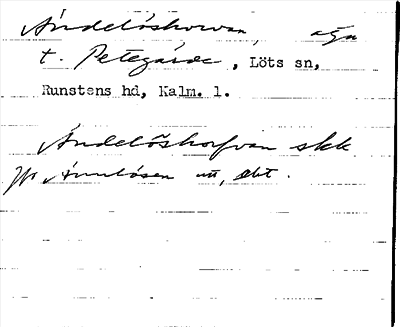 Ändelöshorvan, äga
t. Petegärde, Löts sn,
Runstens hd, Kalm. l.
Ändelöshorfvan skk
Jfr Ännlösen utt, ibt.